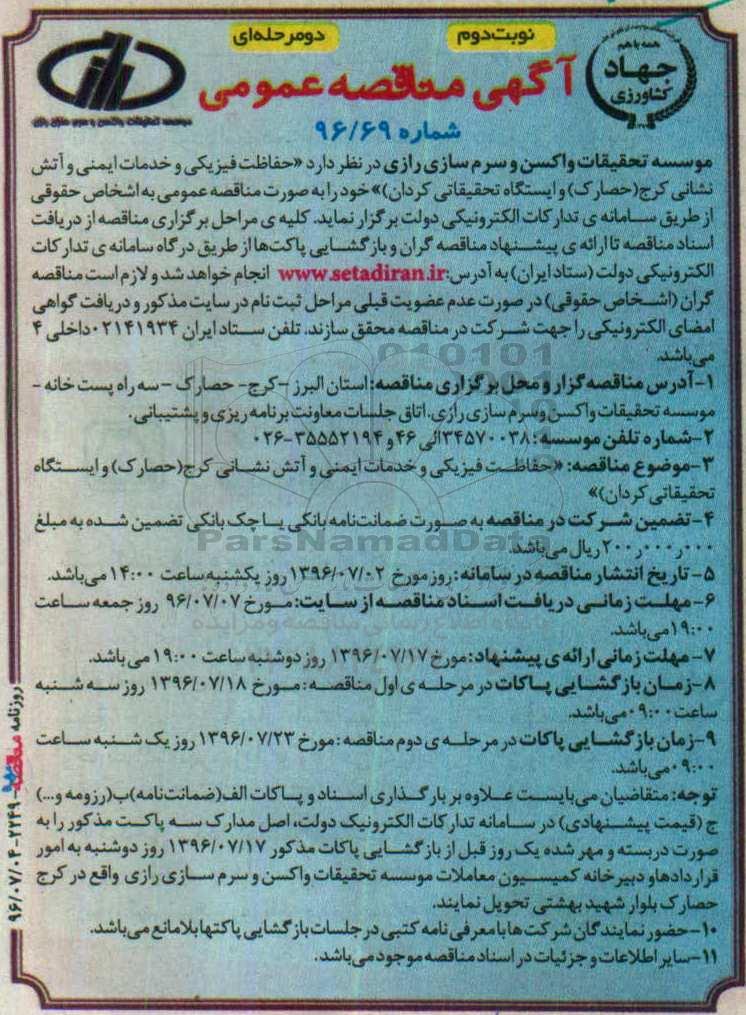 نوبت دوم
دومرحله‌ای
همه با هم
جهاد
کشاورزی
آگهی مناقصه عمومی
شماره ۹۶/۶۹
موسسه تحقیقات واکسن و سرم سازی رازی
موسسه تحقیقات واکسن و سرم سازی رازی در نظر دارد «حفاظت فیزیکی و خدمات ایمنی و آتش
نشانی کرج(حصارک) و ایستگاه تحقیقاتی کردان)» خود را به صورت مناقصه عمومی به اشخاص حقوقی
از طریق سامانه ی تدارکات الکترونیکی دولت برگزار نماید. کلیه ی مراحل برگزاری مناقصه از دریافت
اسناد مناقصه تا ارائه ی پیشنهاد مناقصه گران و بازگشایی پاکت‌ها از طریق درگاه سامانه ی تدارکات
الکترونیکی دولت (ستاد ایران) به آدرس:www.setadiran.ir انجام خواهد شد و لازم است مناقصه
گران (اشخاص حقوقی) در صورت عدم عضویت قبلی مراحل ثبت نام در سایت مذکور و دریافت گواهی
امضای الکترونیکی را جهت شرکت در مناقصه محقق سازند. تلفن ستاد ایران ۰۲۱۴۱۹۳۴داخلی ۴
می‌باشد.
۱-آدرس مناقصه گزار و محل برگزاری مناقصه: استان البرز –کرج- حصارک – سه راه پست خانه -
موسسه تحقیقات واکسن وسرم سازی رازی. اتاق جلسات معاونت برنامه ریزی و پشتیبانی.
۲-شماره تلفن موسسه: ۳۴۵۷۰۰۳۸الی ۴۶ و ۳۵۵۵۲۱۹۴-۰۲۶
۳-موضوع مناقصه: «حفاظت فیزیکی و خدمات ایمنی و آتش نشانی کرج(حصارک) و ایستگاه
تحقیقاتی کردان)»
۴-تضمین شرکت در مناقصه به صورت ضمانت‌نامه بانکی یا چک بانکی تضمین شده به مبلغ
۲۰۰ر۰۰۰ر۰۰۰ ریال می‌باشد.
۵- تاریخ انتشار مناقصه در سامانه: روز مورخ ۱۳۹۶/۰۷/۰۲ روز یکشنبه ساعت ۱۴:۰۰ می‌باشد.
۶-مهلت زمانی دریافت اسناد مناقصه از سایت: مورخ ۹۶/۰۷/۰۷ روز جمعه ساعت
۱۹:۰۰ می‌باشد.
۷- مهلت زمانی ارائه ی پیشنهاد: مورخ ۱۳۹۶/۰۷/۱۷ روز دوشنبه ساعت ۱۹:۰۰ می باشد.
۸-زمان بازگشایی پاکات در مرحله ی اول مناقصه: مورخ ۱۳۹۶/۰۷/۱۸ روز سه شنبه
ساعت ۰۹:۰۰ می‌باشد.
۹-زمان بازگشایی پاکات در مرحله ی دوم مناقصه: مورخ ۱۳۹۶/۰۷/۲۳ روز یک شنبه ساعت
۰۹:۰۰ می‌باشد.
توجه: متقاضیان می‌بایست علاوه بر بارگذاری اسناد و پاکات الف(ضمانت‌نامه)ب(رزومه و...)
ج (قیمت پیشنهادی) در سامانه تدارکات الکترونیک دولت، اصل مدارک سه پاکت مذکور را به
صورت دربسته و مهر شده یک روز قبل از بازگشایی پاکات مذکور ۱۳۹۶/۰۷/۱۷ روز دوشنبه به امور
قراردادها و دبیرخانه کمیسیون معاملات موسسه تحقیقات واکسن و سرم سازی رازی واقع در کرج
حصارک بلوار شهید بهشتی تحویل نمایند.
۱۰-حضور نمایندگان شرکت ها با معرفی نامه کتبی در جلسات بازگشایی پاکتها بلامانع می‌باشد.
۱۱-سایر اطلاعات و جزئیات در اسناد مناقصه موجود می‌باشد.
روزنامه مناقصه -۲۲۴۹-۹۶/۰۷/۰۴
ParsNamadData